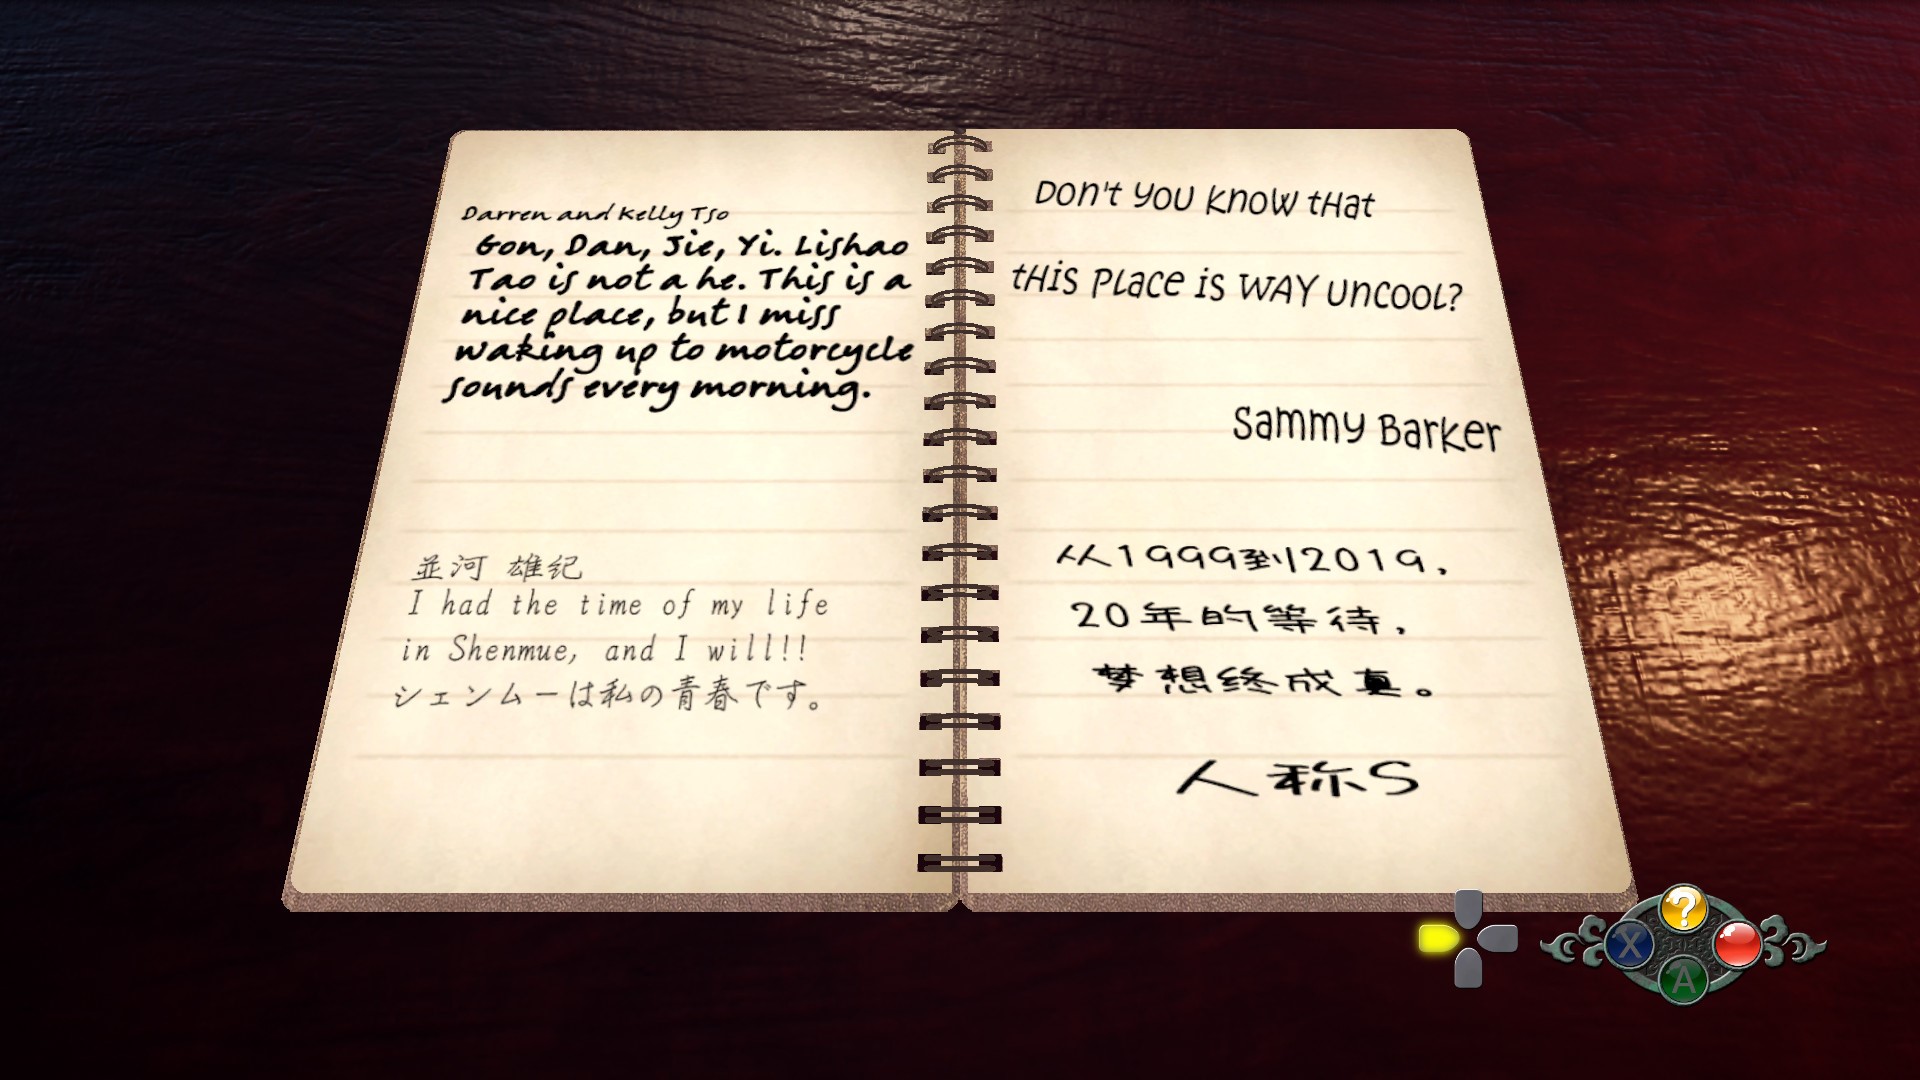 Darren and Kelly Tso
Gon, Dan, Jie, Yi. Lishao
Tao is not a he. This is a
nice place, but I miss
waking up to motorcycle
sounds every morning.
並河 雄紀
I had the time of my life
in Shenmue, and I will!!
シェンムーは私の青春です。
Don't you know tHat
tHis PLace is WAY uncooL?
Sammy Barker
从1999到2019，
20年的等待，
梦想终成真。
人称S
?
X
A